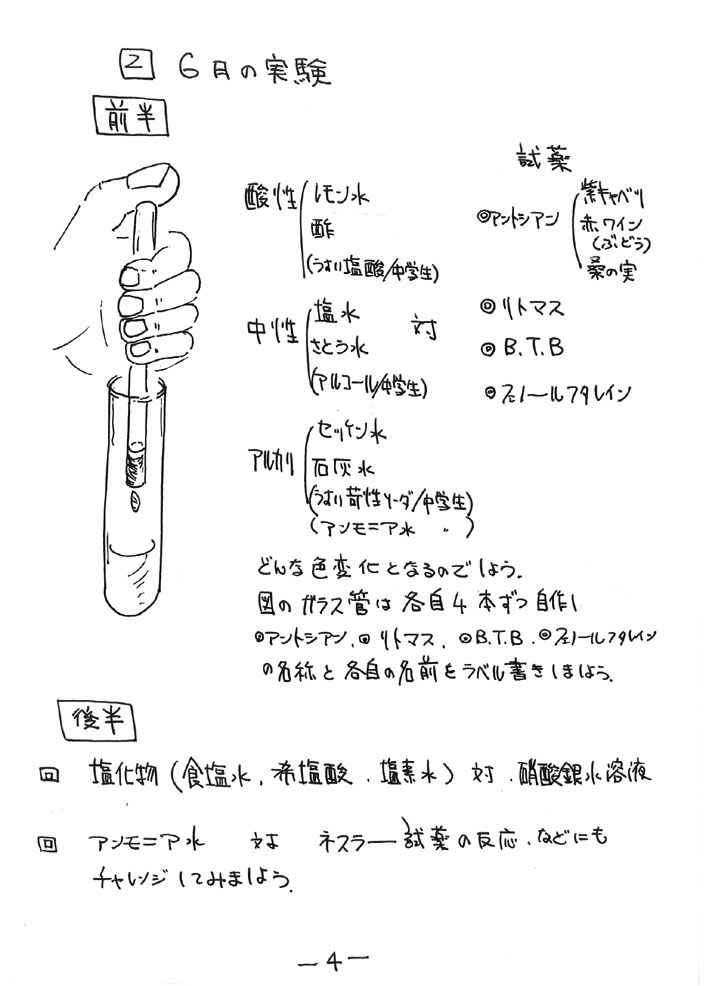 2 6月の実験
前半
試薬
酸性 レモン水
酢
(うすい塩酸/中学生)
中性 塩水
さとう水
(アルコール/中学生)
アルカリ セッケン水
石灰水
(うすい苛性ソーダ/中学生)
(アンモニア水 〃 )
対
◎アントシアン 紫キャベツ
赤ワイン
(ぶどう)
桑の実
◎リトマス
◎B.T.B
◎フェノールフタレイン
どんな色変化となるのでしょう。
図のガラス管は各自4本ずつ自作し
◎アントシアン、◎リトマス、◎B.T.B、◎フェノールフタレイン
の名称と各自の名前をラベル書きしましょう。
後半
回 塩化物(食塩水、希塩酸、塩素水) 対、硝酸銀水溶液
回 アンモニア水 対 ネスラー試薬の反応、などにも
チャレンジしてみましょう。
—4—